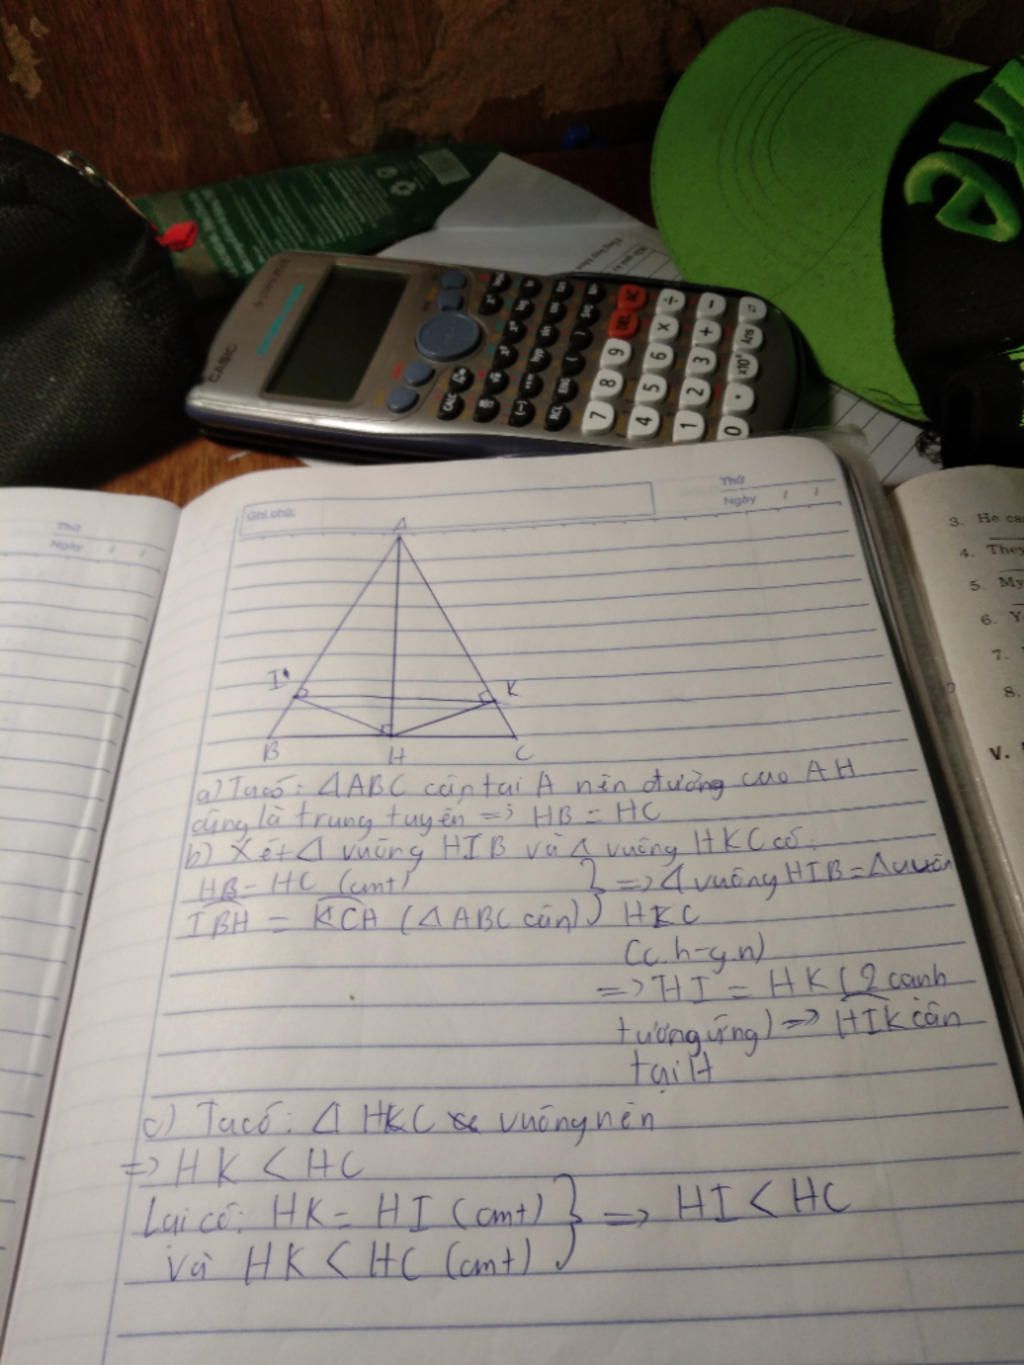 CASIO
DEL AC
7 8 9
4 5 6 x ÷
1 2 3 + −
0 . x10ˣ Ans =
CALC
RCL ENG (−) hyp sin
Thứ
Ngày / /
Ghi chú:
Thứ
Ngày / /
A
I
K
B H C
a) Ta có: ΔABC cân tại A nên đường cao AH
cũng là trung tuyến => HB = HC
b) Xét Δ vuông HIB và Δ vuông HKC có:
HB = HC (cmt)
IBH = KCH (ΔABC cân)
} => Δ vuông HIB = Δ vuôn
HKC
(c.h-g.n)
=> HI = HK (2 cạnh
tương ứng) => HIK cân
tại H
c) Ta có: Δ HKC vuông nên
=> HK < HC
Lại có: HK = HI (cmt)
và HK < HC (cmt)
} => HI < HC
3. He ca
4. They
5. My
6. Y
7.
8.
V.